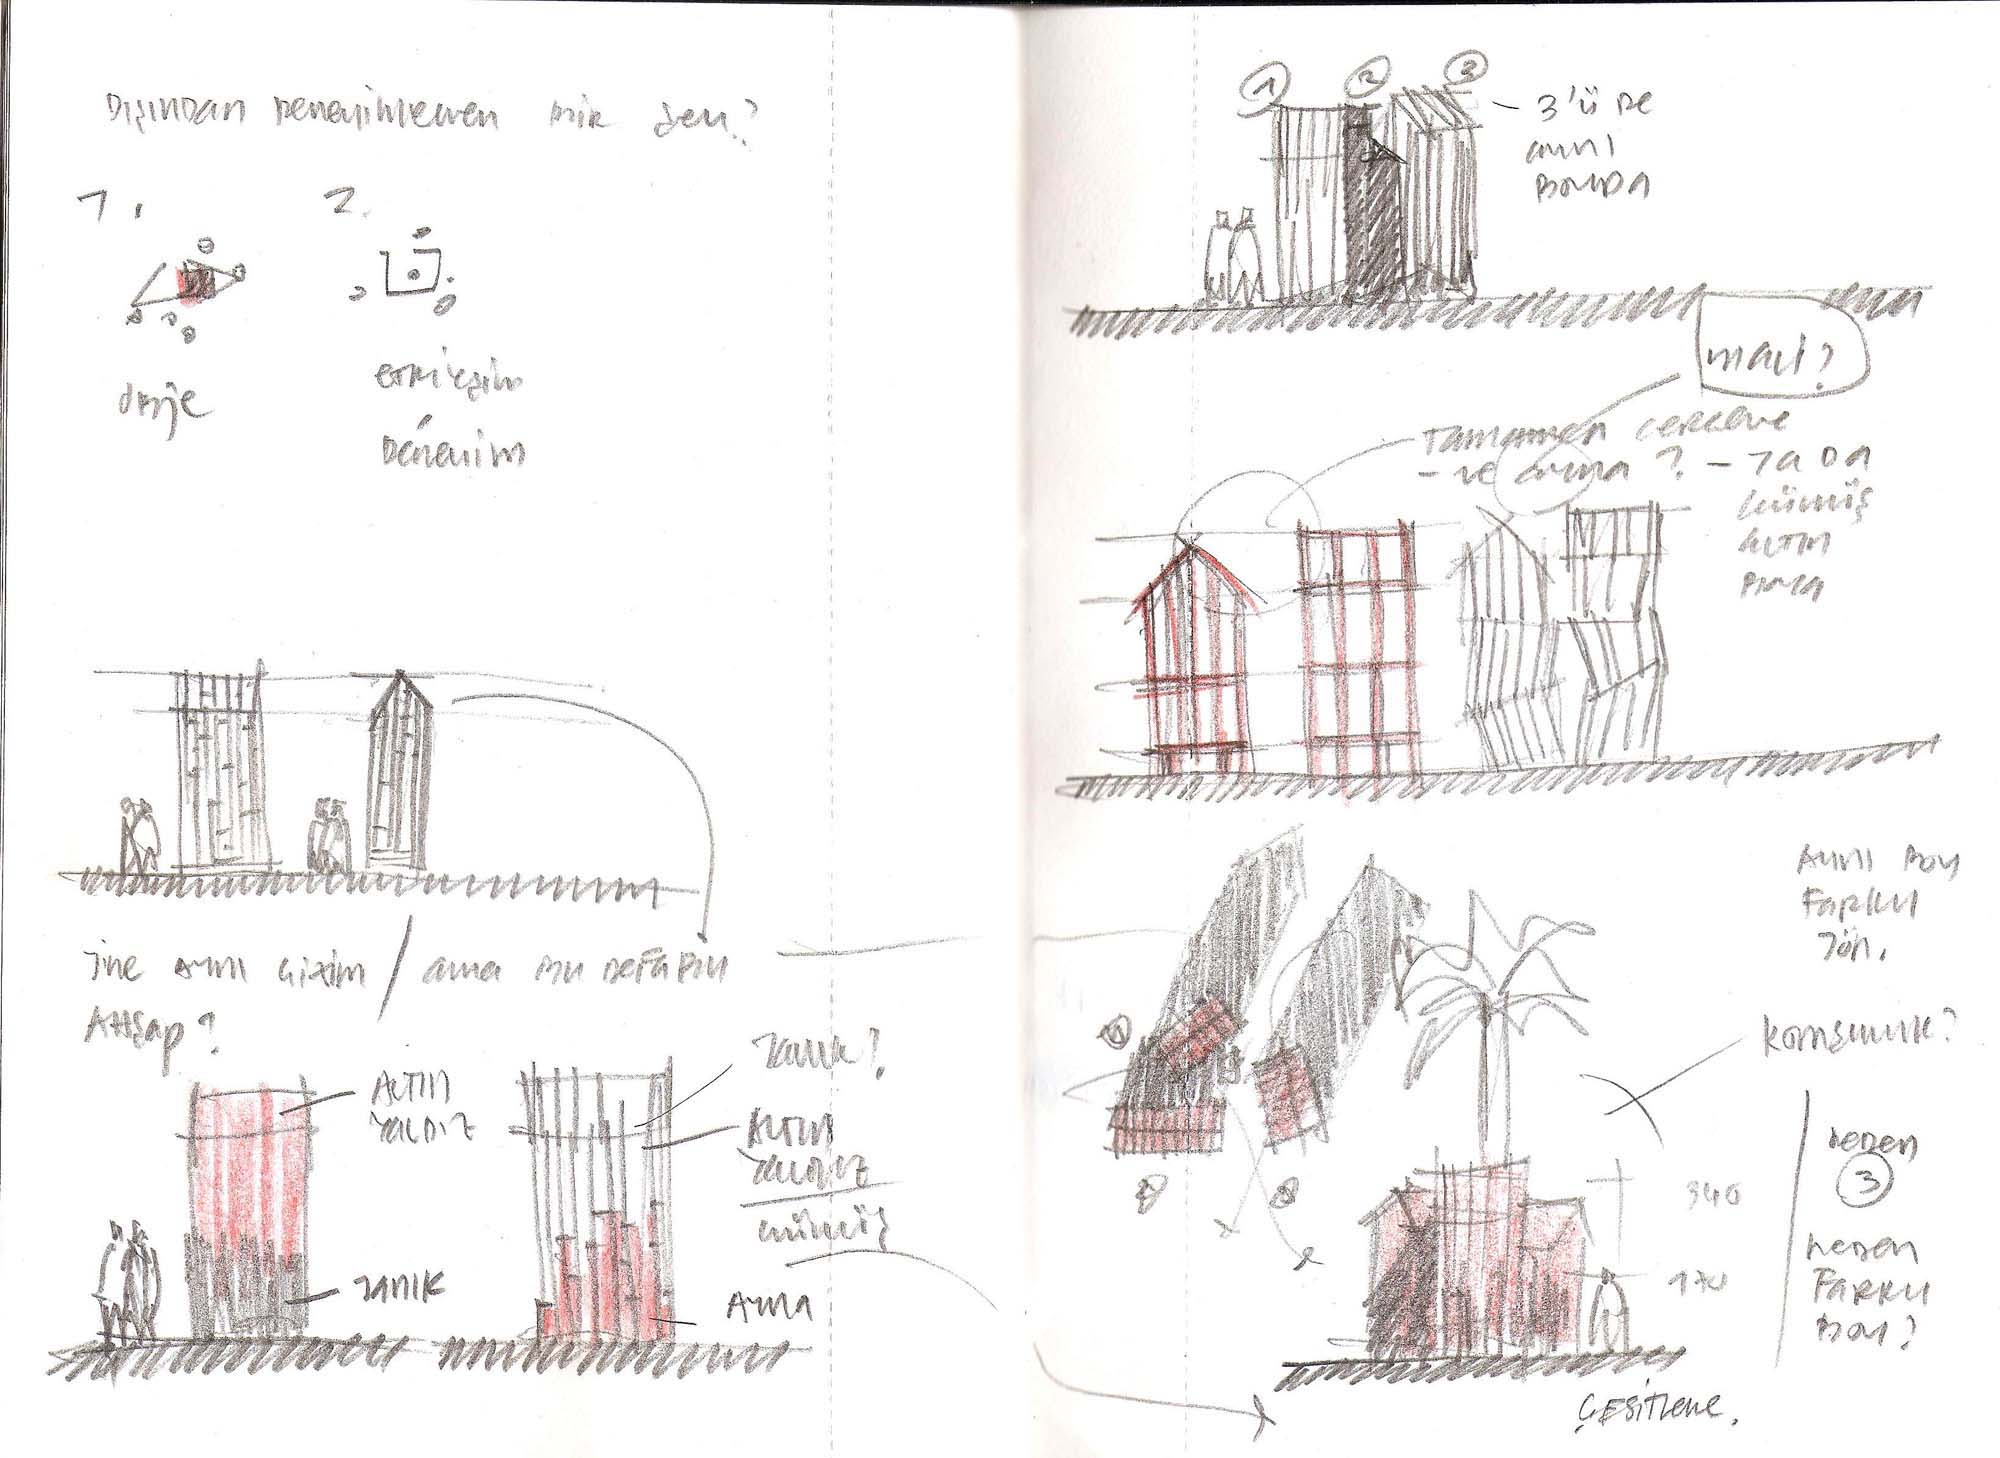 Dışından deneyimlenen bir şey?
1.
2.
obje
etkileşim
Deneyim
Yine aynı çizim / ama bu defa bu
Ahşap?
ALTIN
YALDIZ
YANIK
Yanık?
ALTIN
YALDIZ
Gümüş
Ayna
1
2
3
- 3'ü de
aynı
boyda
mavi?
Tamamen çerçeve
- ve ayna? - ya da
Gümüş
Altın
Aynı boy
Farklı
Yön.
komşuluk?
340
170
Neden
3
Neden
Farklı
Boy?
ÇEŞİTLEME.